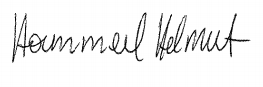 Hammerl Helmut